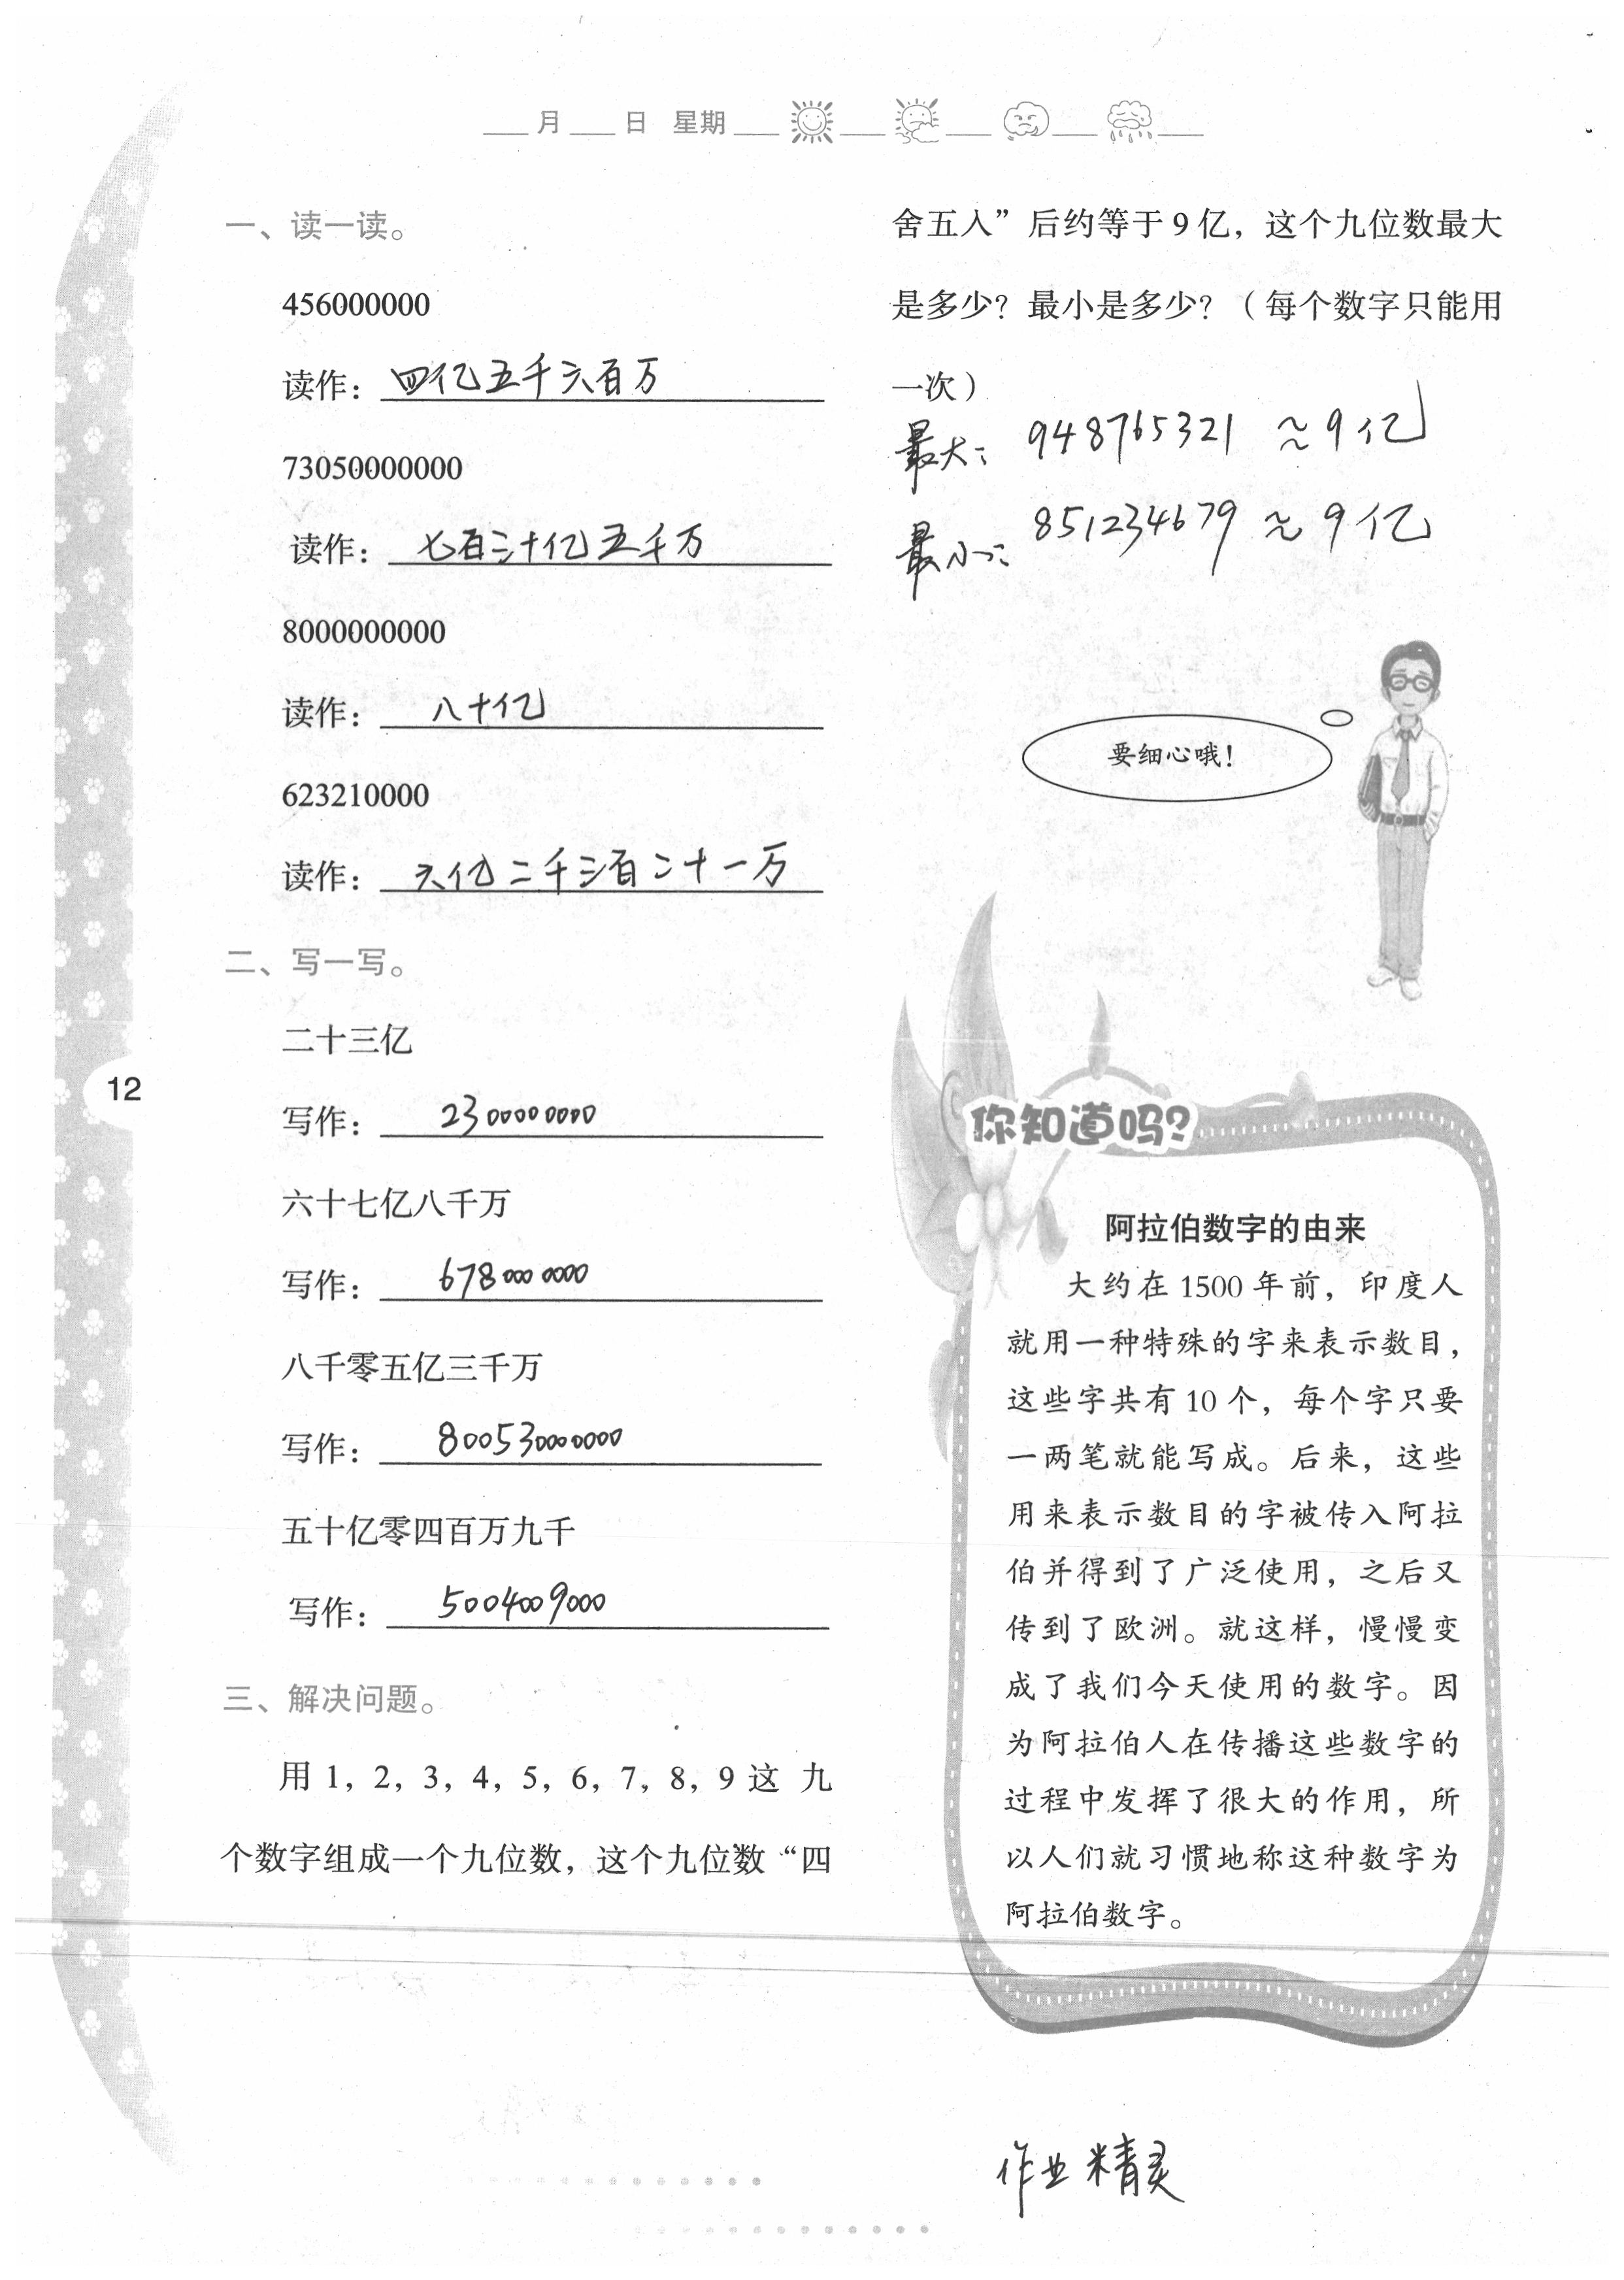 ___月___日 星期___ ___ ___ ___ ___
一、读一读。
456000000
读作：四亿五千六百万
73050000000
读作：七百三十亿五千万
8000000000
读作：八十亿
623210000
读作：六亿二千三百二十一万
二、写一写。
二十三亿
写作：2300000000
六十七亿八千万
写作：6780000000
八千零五亿三千万
写作：800530000000
五十亿零四百万九千
写作：5004009000
三、解决问题。
用 1, 2, 3, 4, 5, 6, 7, 8, 9 这 九
个数字组成一个九位数，这个九位数“四
12
舍五入”后约等于 9 亿，这个九位数最大
是多少？最小是多少？（每个数字只能用
一次）
最大： 948765321 ≈ 9亿
最小： 851234679 ≈ 9亿
要细心哦！
你知道吗？
阿拉伯数字的由来
大约在 1500 年前，印度人
就用一种特殊的字来表示数目，
这些字共有 10 个，每个字只要
一两笔就能写成。后来，这些
用来表示数目的字被传入阿拉
伯并得到了广泛使用，之后又
传到了欧洲。就这样，慢慢变
成了我们今天使用的数字。因
为阿拉伯人在传播这些数字的
过程中发挥了很大的作用，所
以人们就习惯地称这种数字为
阿拉伯数字。
作业精灵